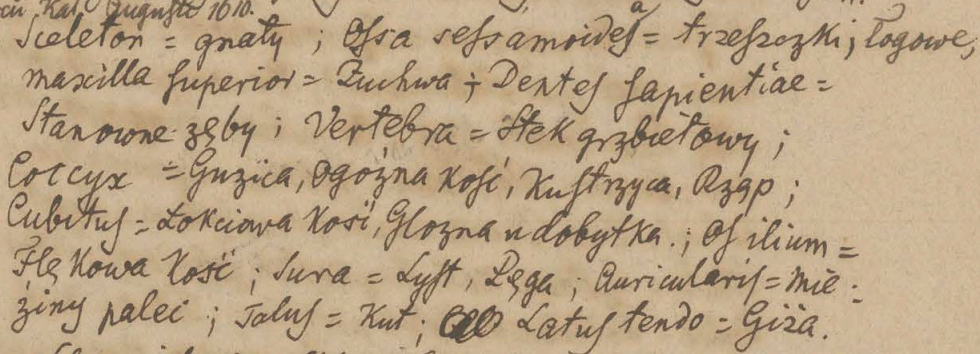 Kal. Augusti 1610.
Sceleton = gnaty ; Ossa sessamoidea = trzeszczki, łogowe,
maxilla superior = Żuchwa ; Dentes sapientiae =
Stanowne zęby ; Vertebra = Stek grzbietowy ;
Coccyx = Guzica, Ogóżna kość, Kustrzyca, Rząp ;
Cubitus = Łokciowa kość, Glozna u dobytka. ; Os ilium =
Flękowa kość ; Sura = Łyst, Lęga ; Auricularis = mie-
ziny palec ; Talus = Kut ; Latus tendo = Giża.